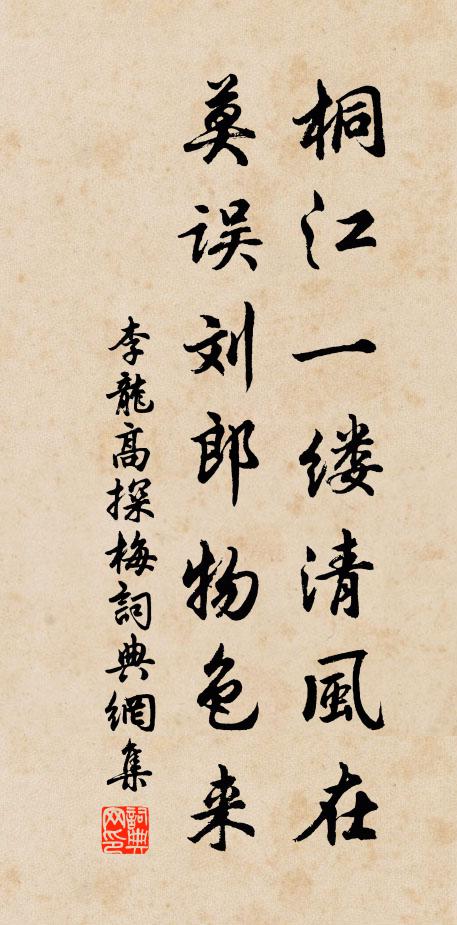 桐江一缕清風在
莫误刘郎物色来
李龍高探梅詞典網集
詞典網印